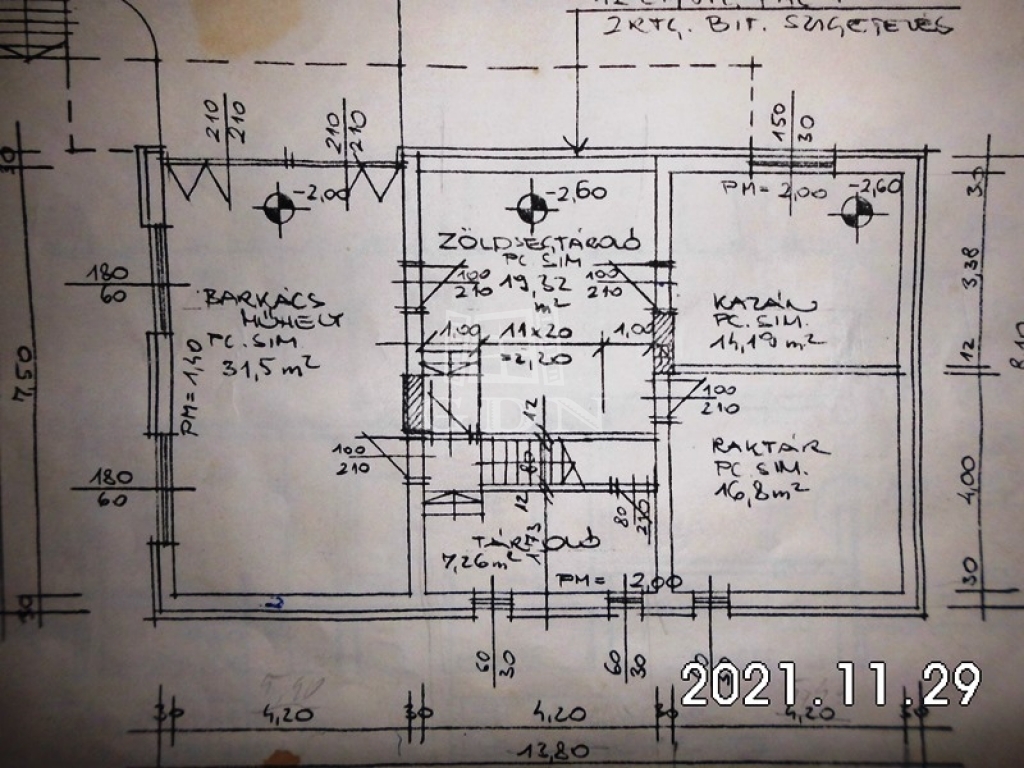 2 RTG. BIT. SZIGETELÉS
210
210
210
210
150
30
PM= 2,00
-2,00
-2,60
-2,60
ZÖLDSÉGTÁROLÓ
PC. SIM
19,32
m²
100
210
100
210
180
60
BARKÁCS
MŰHELY
PC. SIM.
31,5 m²
PM= 1,40
KAZÁN
PC. SIM.
14,19 m²
1,00
11x20
=2,20
1,00
100
210
12
80
12
100
210
RAKTÁR
PC. SIM.
16,8 m²
180
60
80
210
TÁROLÓ
7,26 m²
1,73
PM= 2,00
60
30
60
30
30
30
7,50
30
30
3,38
12
4,00
30
8,10
2021.11.29
30
4,20
30
4,20
30
4,20
30
13,80